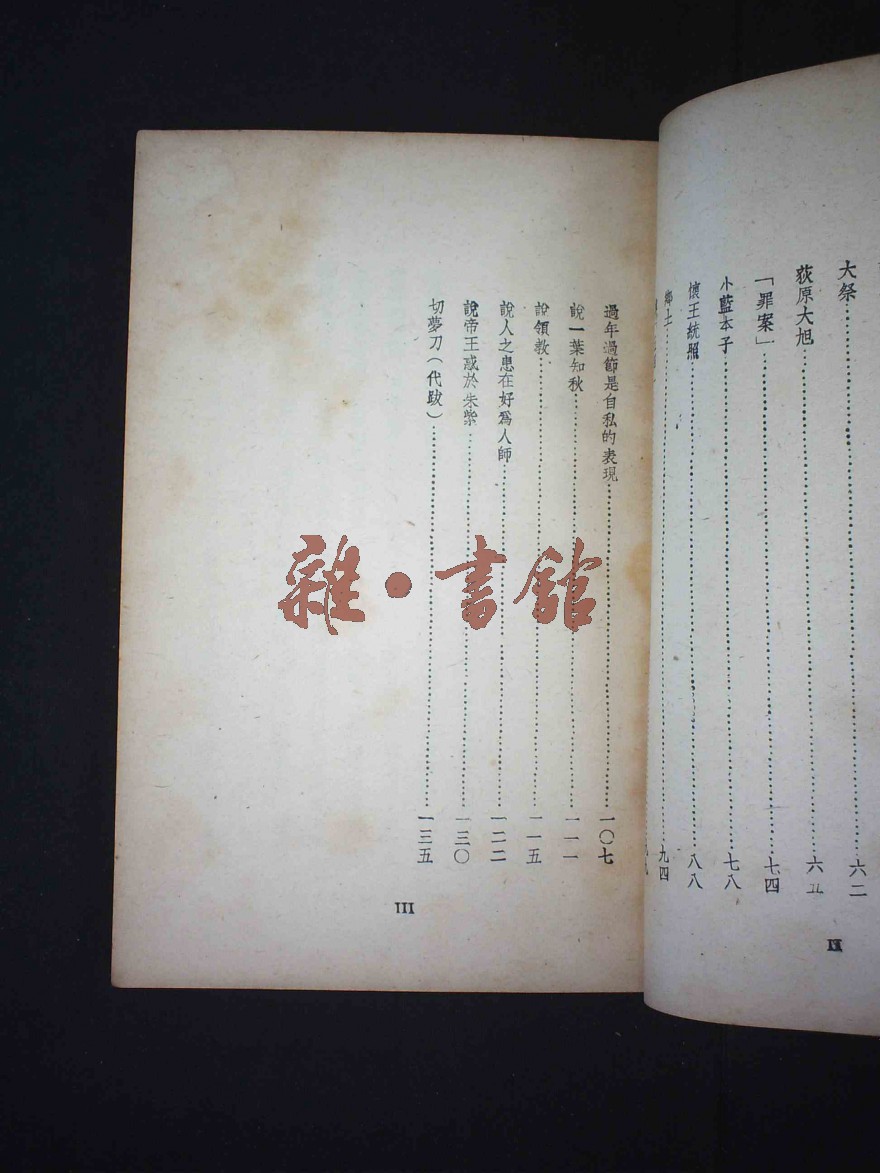 大祭……六二
荻原大旭……六五
「罪案」……七四
小藍本子……七八
懷王統照……八八
鄉土……九四
II
過年過節是自私的表現……一〇七
說一葉知秋……一一一
說領教……一一五
說人之患在好爲人師……一二二
說帝王或於朱紫……一三〇
切夢刀(代跋)……一三五
III
雜·書館